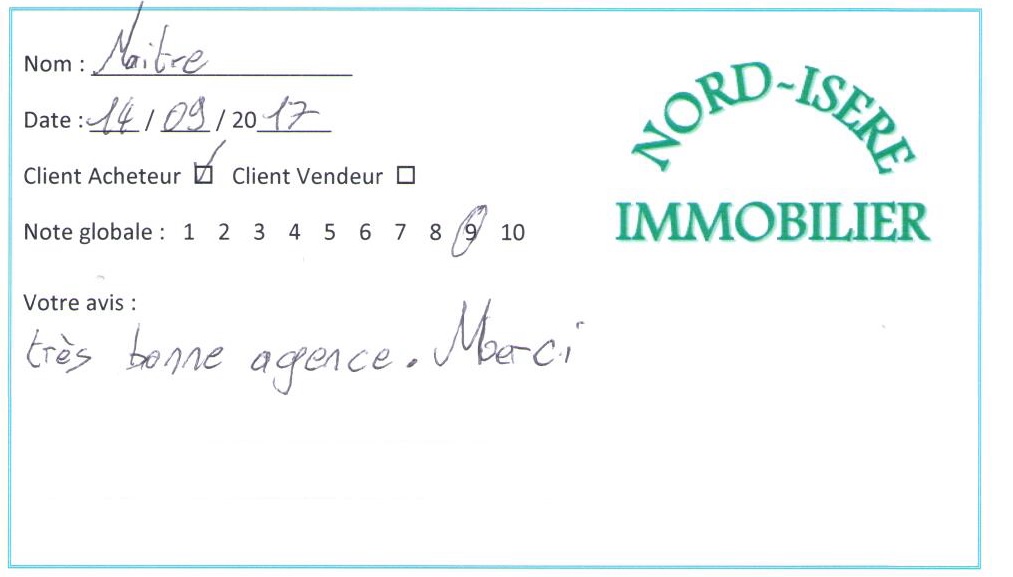 Nom : Maitre
Date : 14 / 09 / 2017
Client Acheteur ☑ Client Vendeur ☐
Note globale : 1 2 3 4 5 6 7 8 9 10
Votre avis :
très bonne agence. Merci
NORD-ISERE
IMMOBILIER